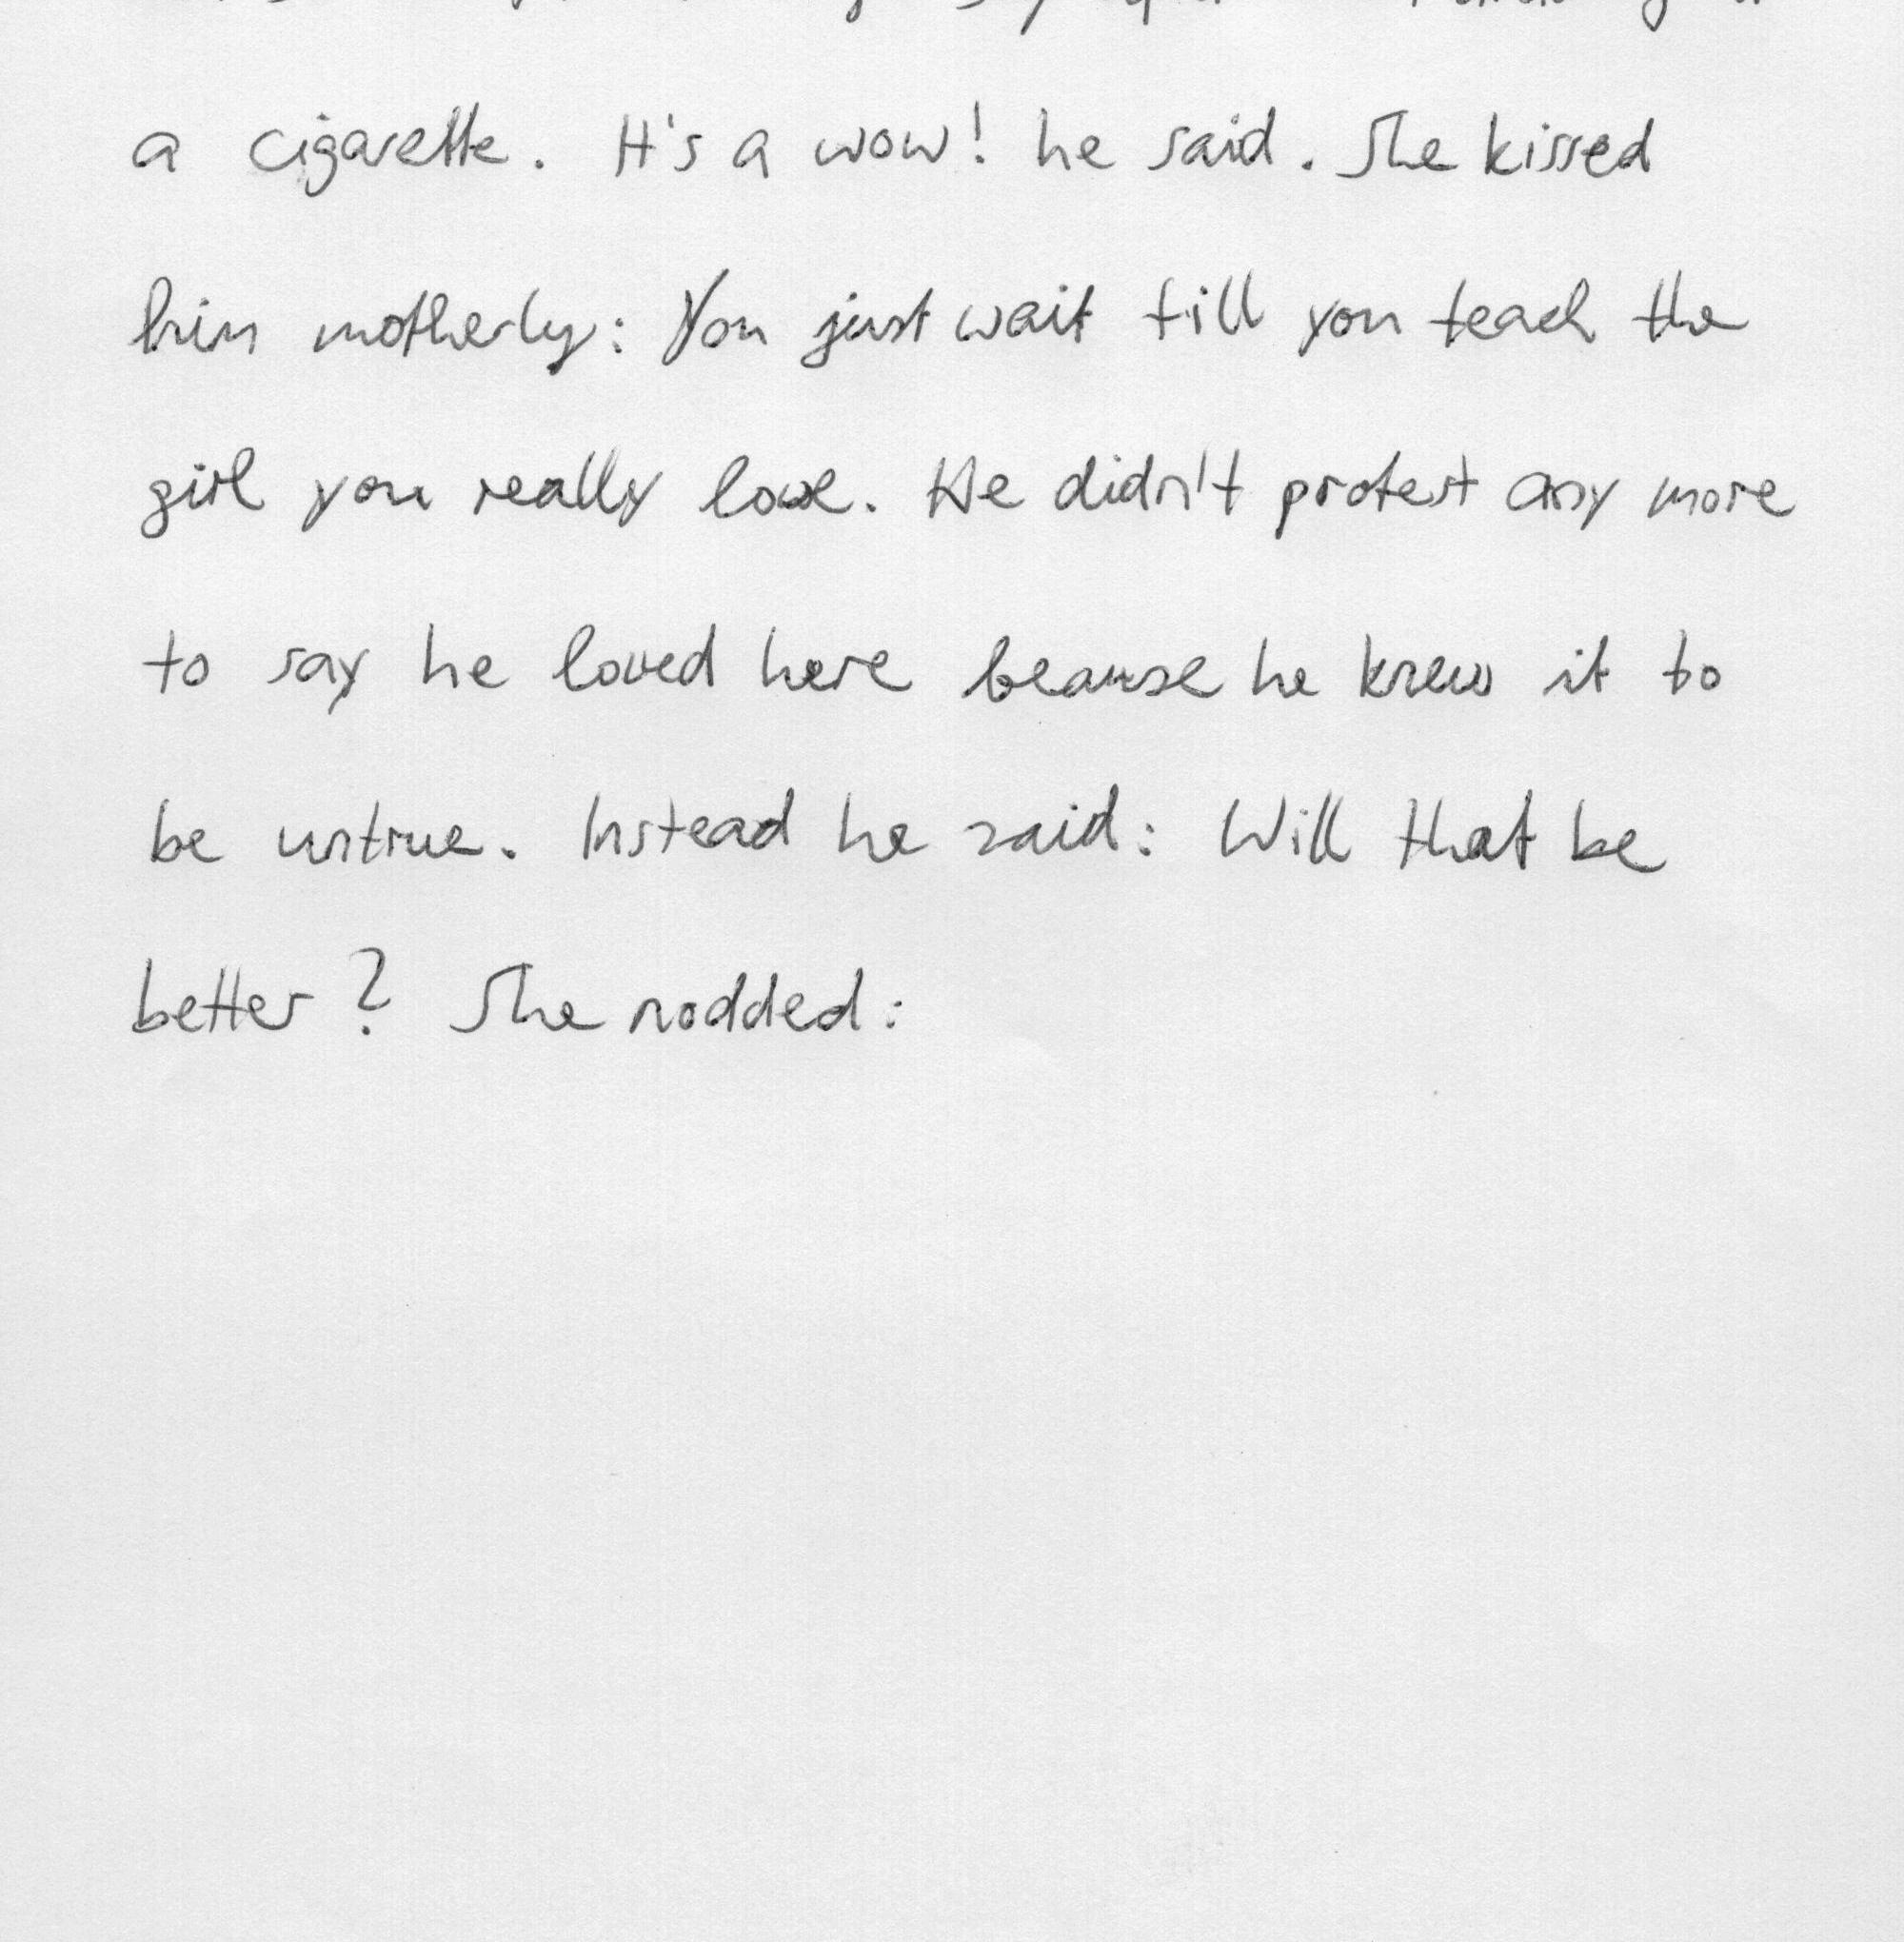 a cigarette. It's a wow! he said. She kissed
him motherly: You just wait till you teach the
girl you really love. He didn't protest any more
to say he loved here beause he knew it to
be untrue. Instead he said: Will that be
better? She nodded: